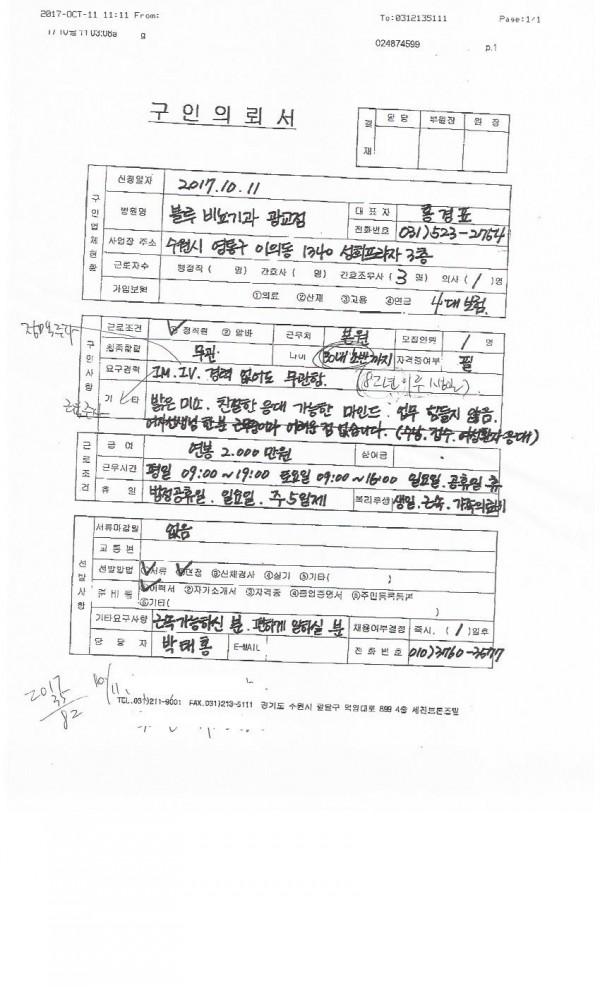 2017-OCT-11 11:11 From: To:0312135111 Page:1/1
g 024874599 p.1
구 인 의 뢰 서
결 재 담 당 부원장 원 장
구인업체현황
신청일자 2017.10.11
병원명 블루 비뇨기과 광교점 대 표 자 홍경표
전화번호 031)523-2754
사업장 주소 수원시 영통구 이의동 1340 성희프라자 3층
근로자수 행정직 ( 명) 간호사 ( 명) 간호조무사 ( 3 명) 의사 ( 1 )명
가입보험 ①의료 ②산재 ③고용 ④연금 4대 보험.
구인사항
근로조건 정직원 ② 알바 근무처 본원 모집인원 1 명
무관 나이 30대 초반까지 자격증여부 필
요구경력 I.M. I.V. 경력 없어도 무관함. (82년 이후
기 타 밝은 미소. 친절한 응대 가능한 마인드. 업무 힘들지 않음.
어려운 점 없습니다. (수납, 접수, 여성환자 응대)
근로조건
급 여 연봉 2.000 만원 상여금
근무시간 평일 09:00 ~ 19:00 토요일 09:00 ~ 16:00 일요일. 공휴일 휴
휴 일 법정공휴일. 일요일. 주5일제 복리후생 생일. 근속. 가족의료비
선발사항
서류마감일 없음
교 통 편
선발방법 ①서류 면접 ③신체검사 ④실기 ⑤기타( )
준 비 물 이력서 ②자기소개서 ③자격증 ④졸업증명서 ⑤주민등록등본
⑥기타( )
기타요구사항 근속가능하신 분. 편하게 일하실 분 채용여부결정 즉시, ( 1 )일후
담 당 자 박태홍 E-MAIL 전 화 번 호 010)3760-3577
2017 10/11
35
82
TEL.031)211-9001 FAX.031)213-5111 경기도 수원시 팔달구 덕영대로 899 4층 세진브론즈빌